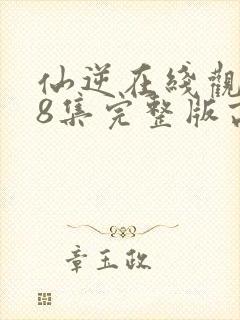 仙逆在綫觀
8集完整版
章玉政